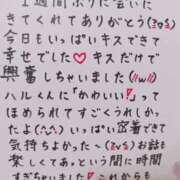 1週間ぶりに会いに
きてくれてありがとう(≧▽≦)
今日もいっぱいキスできて
幸せでした♥キスだけで
興奮しちゃいました(//ω//)
ハルくんに「かわいい♥」って
ほめられてすごくうれしかっ
たよ(^^)いっぱい密着できて
気持ちよかった~(≧▽≦)お話も
楽しくてあっという間に時間
すぎちゃいました♥これからも